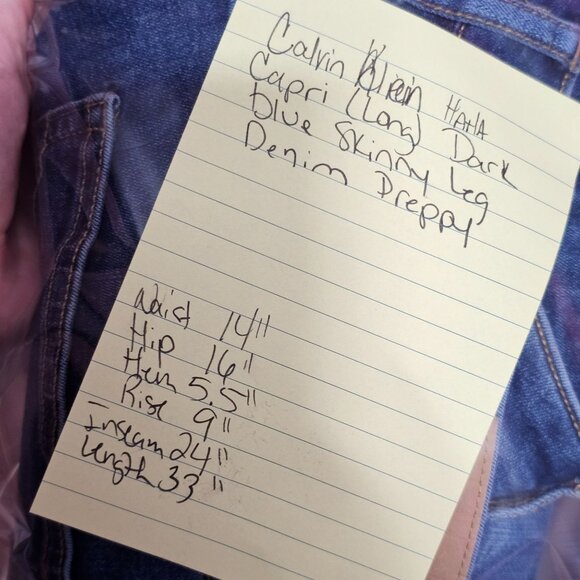 Calvin Klein HAHA
Capri (Long) Dark
blue Skinny Leg
Denim Preppy
Waist 14"
Hip 16"
Hem 5.5"
Rise 9"
Inseam 24"
Length 33"